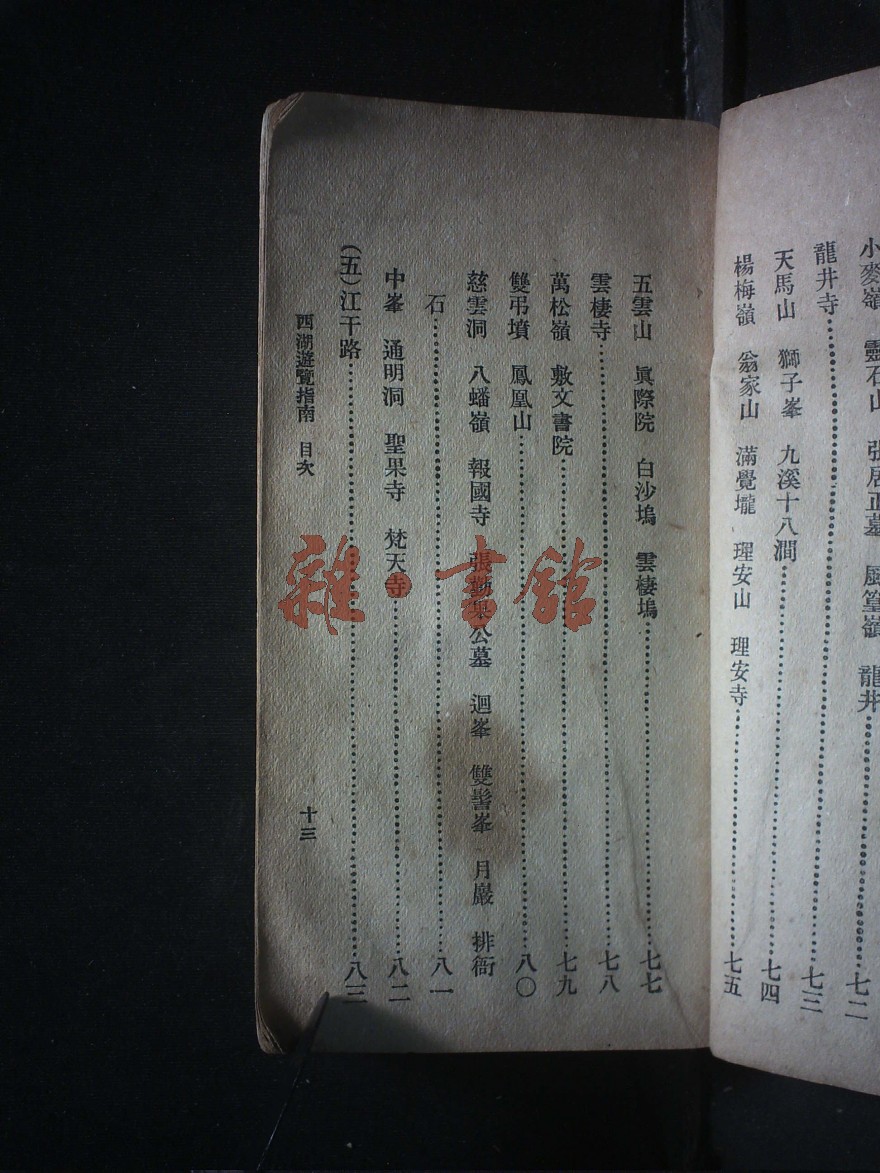 小麥嶺　靈石山　張居正墓　風篁嶺　龍井……七二
龍井寺……七三
天馬山　獅子峯　九溪十八澗……七四
楊梅嶺　翁家山　滿覺壠　理安山　理安寺……七五
五雲山　眞際院　白沙塢　雲棲塢……七七
雲棲寺……七八
萬松嶺　敷文書院……七九
雙弔墳　鳳凰山……八〇
慈雲洞　八蟠嶺　報國寺　張勤果公墓　迴峯　雙髻峯　月巖　排衙
石……八一
中峯　通明洞　聖果寺　梵天寺……八二
(五)江干路……八三
西湖遊覽指南　目次　十三
雜·書館